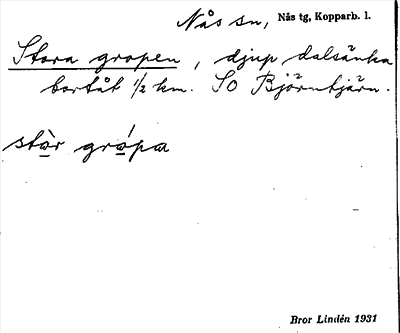 Nås sn, Nås tg, Kopparb. l.
Stora gropen, djup dalsänka
bortåt ½ km. SO Björntjärn.
stòr grópa
Bror Lindén 1931